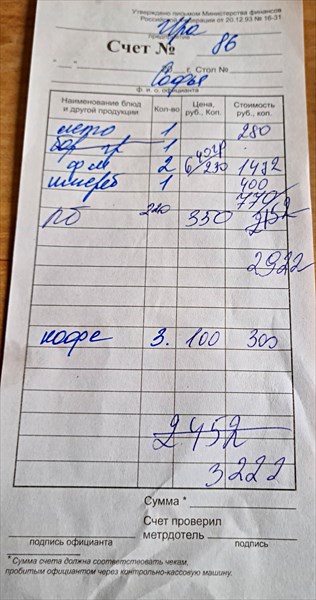 Утверждено письмом Министерства финансов
Российской Федерации от 20.12.93 № 16-31
предприятие
Счет № 86
г. Стол №
Софья
ф. и. о. официанта
Наименование блюд и другой продукции Кол-во Цена, руб., Коп. Стоимость руб., коп.
1 280
1
ф м 2 6 230 1492
1 400
770
240 350 2152
2922
кофе 3. 100 300
2452
3222
Сумма *
Счет проверил
метрдотель
подпись официанта подпись
* Сумма счета должна соответствовать чекам,
пробитым официантом через контрольно-кассовую машину.